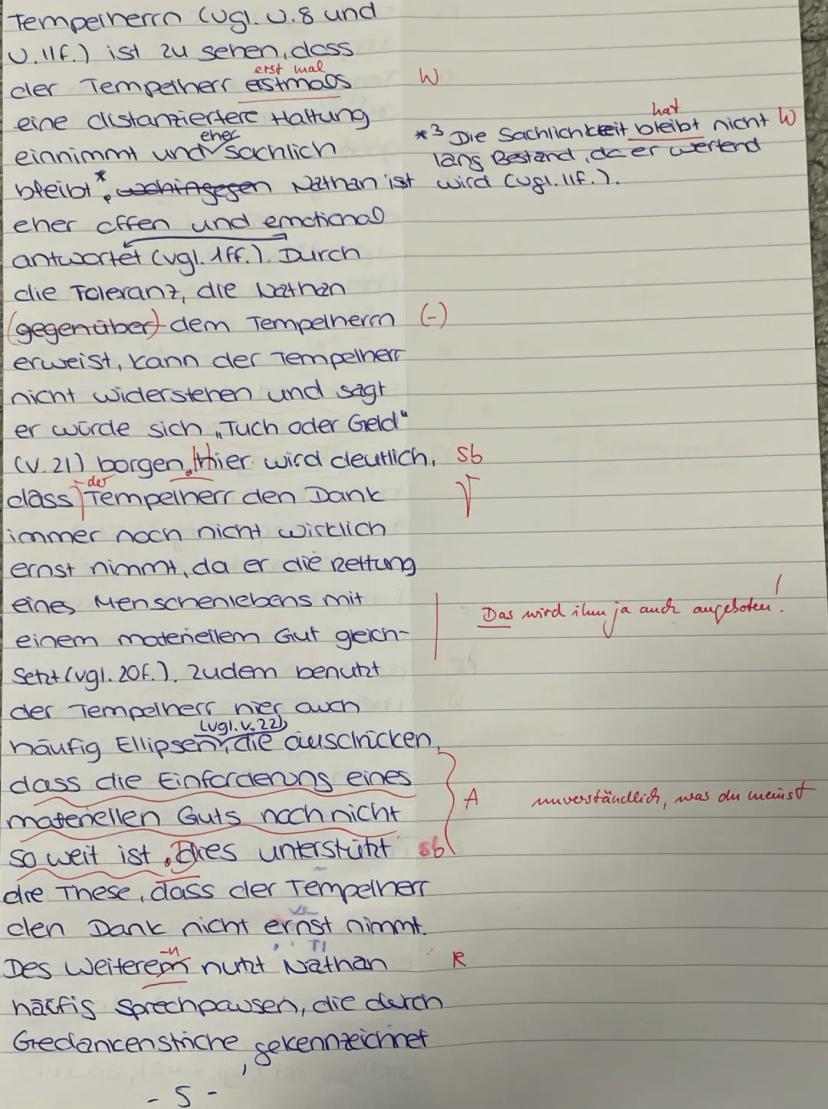 Tempelherrn (vgl. V.8 und
V.11f.) ist zu sehen, dass
erst mal
der Tempelherr erstmals W
eine distanziertere Haltung
hat
*3 Die Sachlichkeit bleibt nicht W
eher
einnimmt und sachlich
lang Bestand, da er wertend
bleibt*, wohingegen Nathan ist
wird (vgl. 11f.).
eher offen und emotional
antwortet (vgl. 1ff.). Durch
die Toleranz, die Nathan
(gegenüber) dem Tempelherrn (-)
erweist, kann der Tempelherr
nicht widerstehen und sagt
er würde sich „Tuch oder Geld“
(V.21) borgen. Hier wird deutlich, Sb
der
dass Tempelherr den Dank
immer noch nicht wirklich
ernst nimmt, da er die Rettung
eines Menschenlebens mit
Das wird ihm ja auch angeboten!
einem materiellem Gut gleich-
setzt (vgl. 20f.). Zudem benutzt
der Tempelherr hier auch
(vgl. V.22)
häufig Ellipsen, die ausdrücken,
dass die Einforderung eines
A unverständlich, was du meinst
materiellen Guts noch nicht
so weit ist. Dies unterstützt sb
die These, dass der Tempelherr
den Dank nicht ernst nimmt.
-n
Des Weiterem nutzt Nathan R
häufig Sprechpausen, die durch
Gedankenstriche, gekennzeichnet
- 5 -